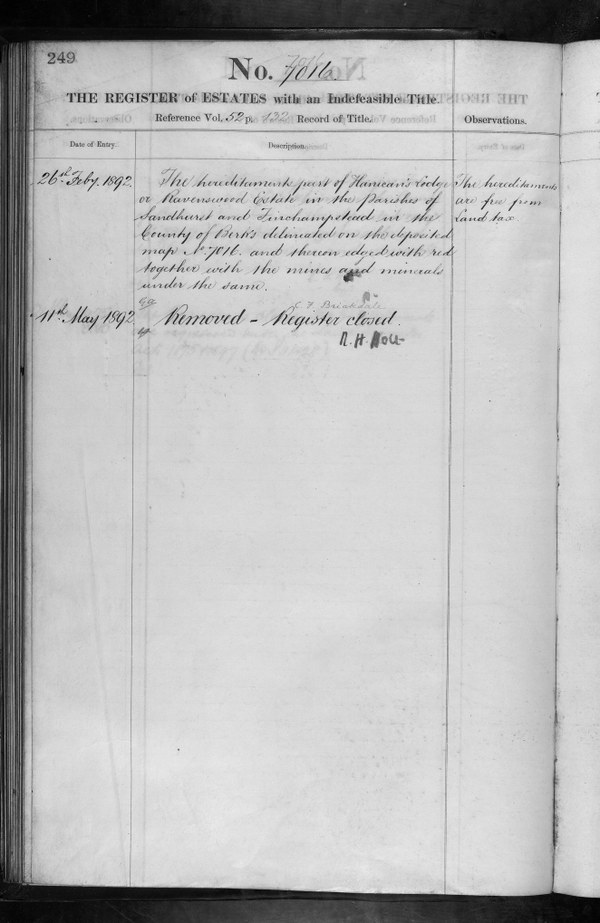 249
No. 7016.
THE REGISTER of ESTATES with an Indefeasible Title.
Reference Vol. 52 p. 132 Record of Title.
Observations.
Date of Entry.
Description.
26th Feby. 1892.
The hereditaments part of Hanican's Lodge
or Ravenswood Estate in the Parishes of
Sandhurst and Finchampstead in the
County of Berks delineated on the deposited
map No. 7016. and thereon edged with red
together with the mines and minerals
under the same.
The hereditaments
are free from
Land tax
11th May 1892
Removed – Register closed.
R. H. Holt